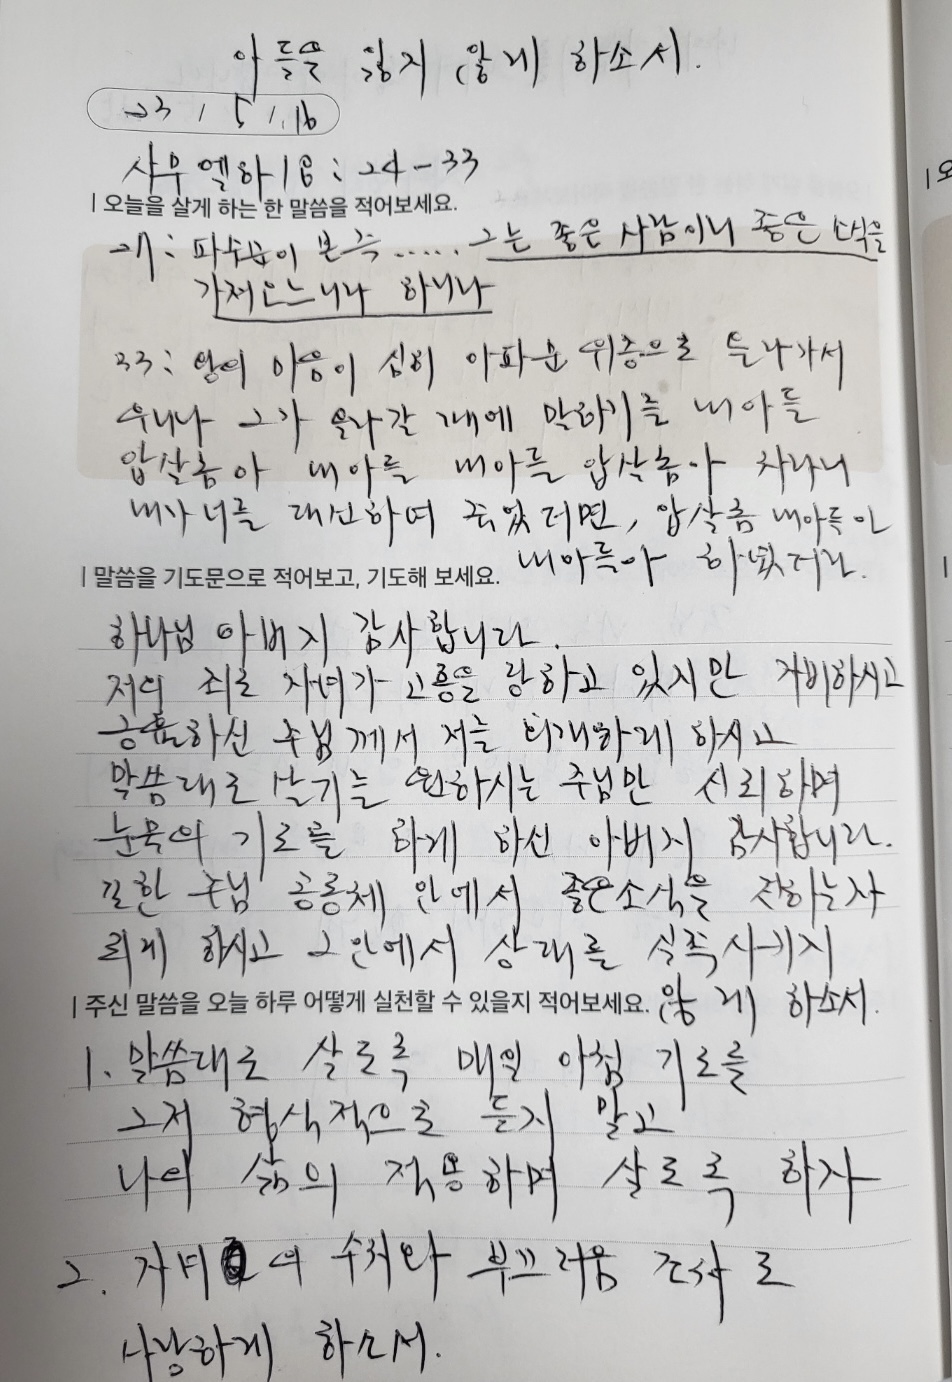 아들을 잃지 않게 하소서.
23 / 5 / 16
사무엘하 18 : 24-33
| 오늘을 살게 하는 한 말씀을 적어보세요.
27: 파수꾼이 본즉 ..... 그는 좋은 사람이니 좋은 소식을
가져오느니라 하니라
33: 왕의 마음이 심히 아파 문 위층으로 올라가서
우니라 그가 올라갈 때에 말하기를 내 아들
압살롬아 내 아들 내 아들 압살롬아 차라리
내가 너를 대신하여 죽었더면, 압살롬 내 아들아
내 아들아 하였더라.
| 말씀을 기도문으로 적어보고, 기도해 보세요.
하나님 아버지 감사합니다.
저의 죄로 자녀가 고통을 당하고 있지만 자비하시고
긍휼하신 주님께서 저를 회개하게 하시고
말씀대로 살기를 원하시는 주님만 신뢰하며
눈물의 기도를 하게 하신 아버지 감사합니다.
또한 주님 공동체 안에서 좋은소식을 전하는자
되게 하시고 그 안에서 상대를 실족시키지
않게 하소서.
| 주신 말씀을 오늘 하루 어떻게 실천할 수 있을지 적어보세요.
1. 말씀대로 살도록 매일 아침 기도를
그저 형식적으로 듣지 말고
나의 삶의 적용하며 살도록 하자
2. 자녀의 수치와 부끄러움 조차도
사랑하게 하소서.